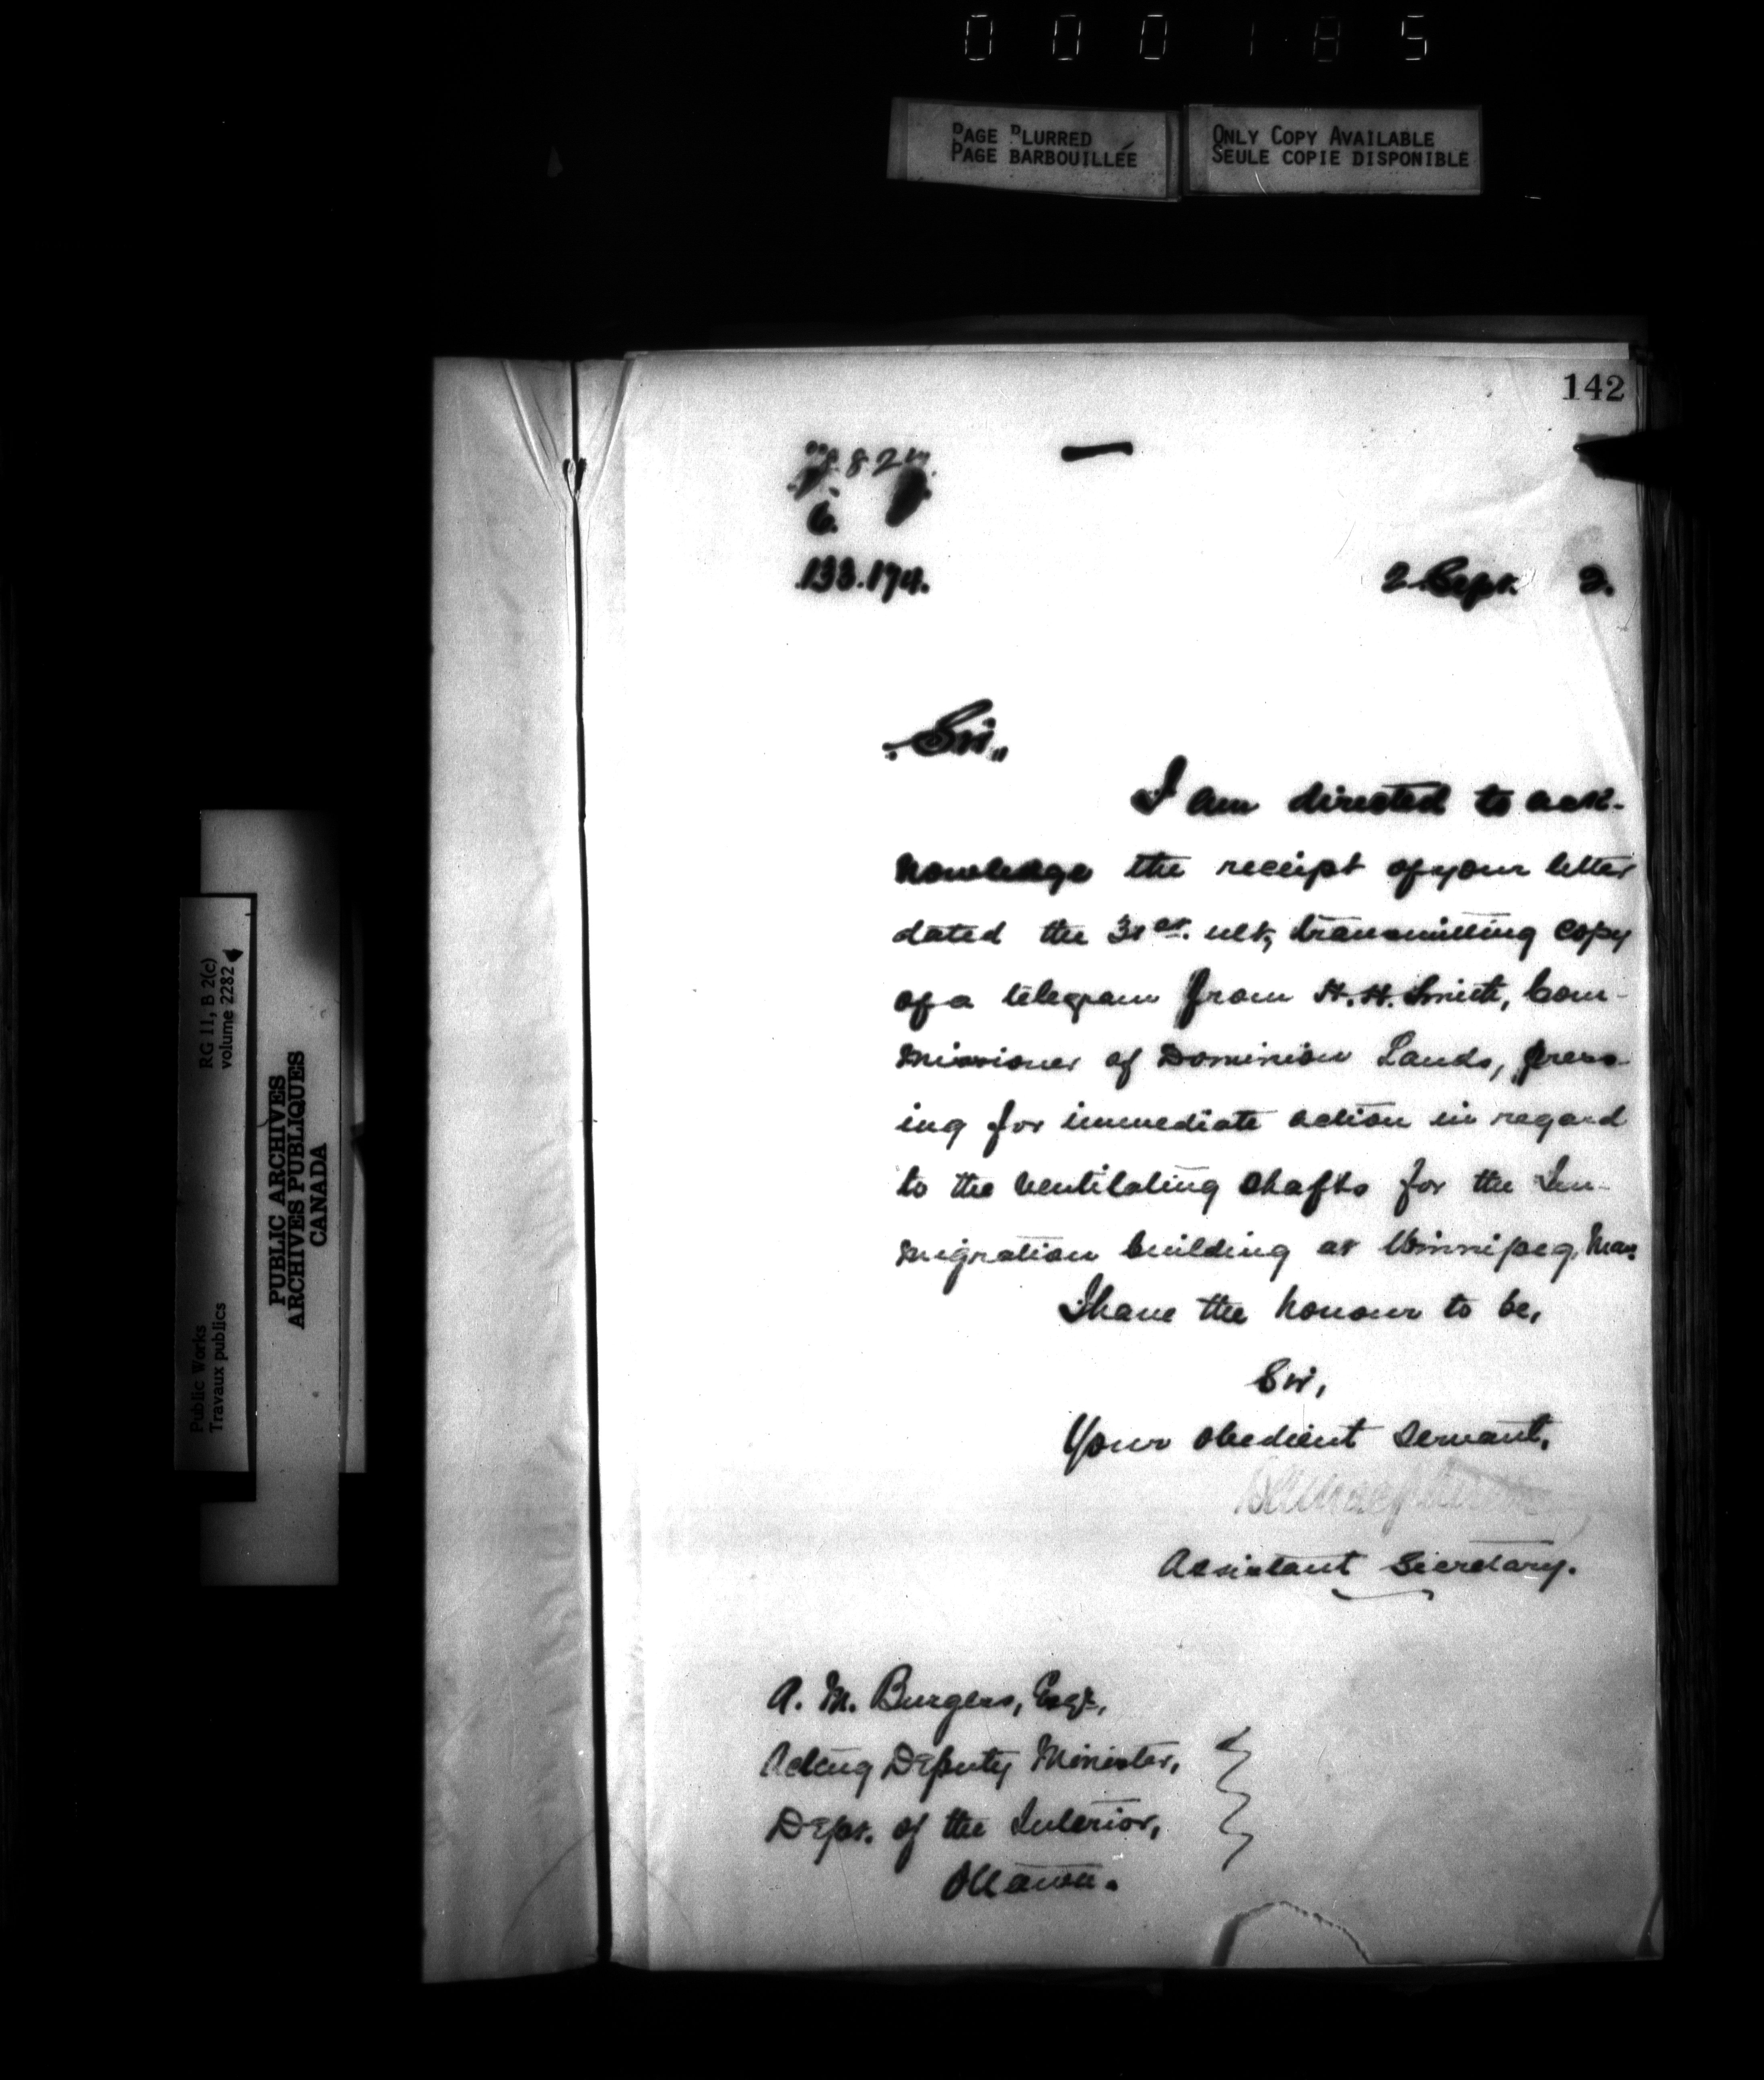 000185
PAGE BLURRED
PAGE BARBOUILLÉE
ONLY COPY AVAILABLE
SEULE COPIE DISPONIBLE
142
6.
133.174.
2 Sept. 2.
Sir,
I am directed to ack-
nowledge the receipt of your letter
dated the 31st. ult, transmitting copy
of a telegram from H. H. Smith, Com-
missioner of Dominion Lands, press-
ing for immediate action in regard
to the ventilating shafts for the Im-
migration building at Winnipeg, Man.
I have the honour to be,
Sir,
Your obedient servant,
Assistant Secretary.
A. M. Burgess, Esqr,
Acting Deputy Minister,
Dept. of the Interior,
Ottawa.
RG 11, B 2(c)
volume 2282
Public Works
Travaux publics
PUBLIC ARCHIVES
ARCHIVES PUBLIQUES
CANADA